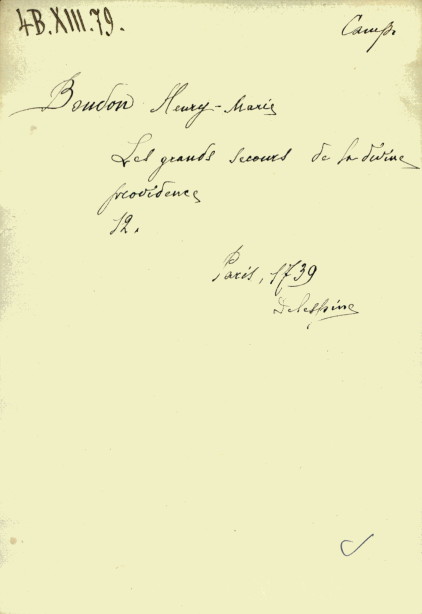 4B.XIII.79.
Camp.
Boudon Henry-Marie
Les grands secours de la divine
providence
12.
Paris, 1739
Delespine